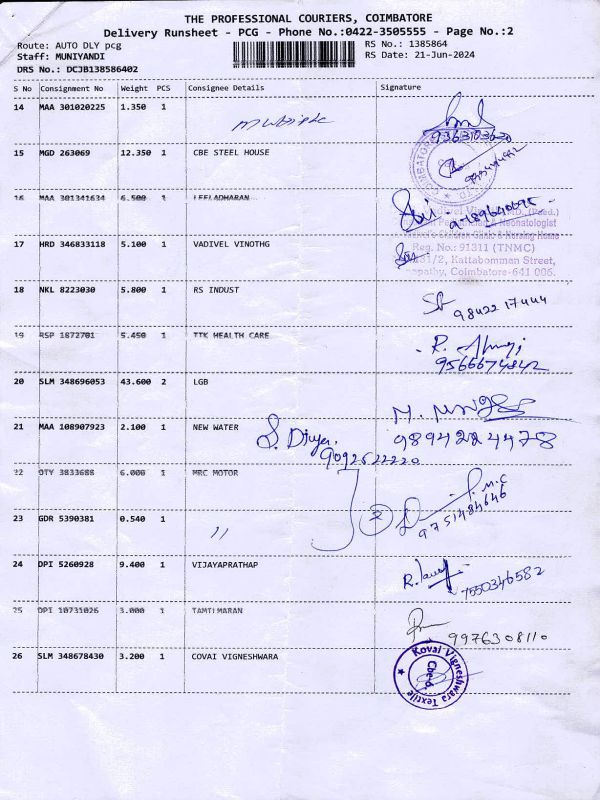 THE PROFESSIONAL COURIERS, COIMBATORE
Delivery Runsheet - PCG - Phone No.:0422-3505555 - Page No.:2
Route: AUTO DLY pcg RS No.: 1385864
Staff: MUNIYANDI RS Date: 21-Jun-2024
DRS No.: DCJB138586402
S No Consignment No Weight PCS Consignee Details Signature
14 MAA 301020225 1.350 1
9363103620
15 MGD 263069 12.350 1 CBE STEEL HOUSE
16 MAA 301341634 6.500 1 LEELADHARAN
17 HRD 346833118 5.100 1 VADIVEL VINOTHG
Reg. No.: 91311 (TNMC)
Kattabomman Street,
Coimbatore-641 006.
18 NKL 8223030 5.800 1 RS INDUST
98422 17444
19 RSP 1872701 5.450 1 TTK HEALTH CARE
9566674842
20 SLM 348696053 43.600 2 LGB
21 MAA 108907923 2.100 1 NEW WATER S. Divya. 9894224478
9092522220
22 OTY 3833688 6.000 1 MRC MOTOR
2 9751484646
23 GDR 5390381 0.540 1 "
24 DPI 5260928 9.400 1 VIJAYAPRATHAP
7550346582
25 DPI 10731026 3.000 1 TAMILMARAN
9976308110
26 SLM 348678430 3.200 1 COVAI VIGNESHWARA
Kovai Vigneshwara Textile
Cbe-6